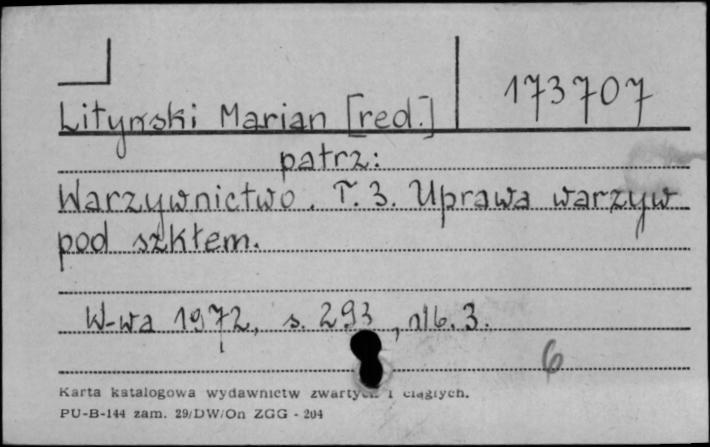 173707
Lityński Marian [red.]
patrz:
Warzywnictwo. T. 3. Uprawa warzyw
pod szkłem.
W-wa 1972, s. 293, nlb. 3.
6
Karta katalogowa wydawnictw zwartych i ciągłych.
PU-B-144 zam. 29/DW/On ZGG - 204